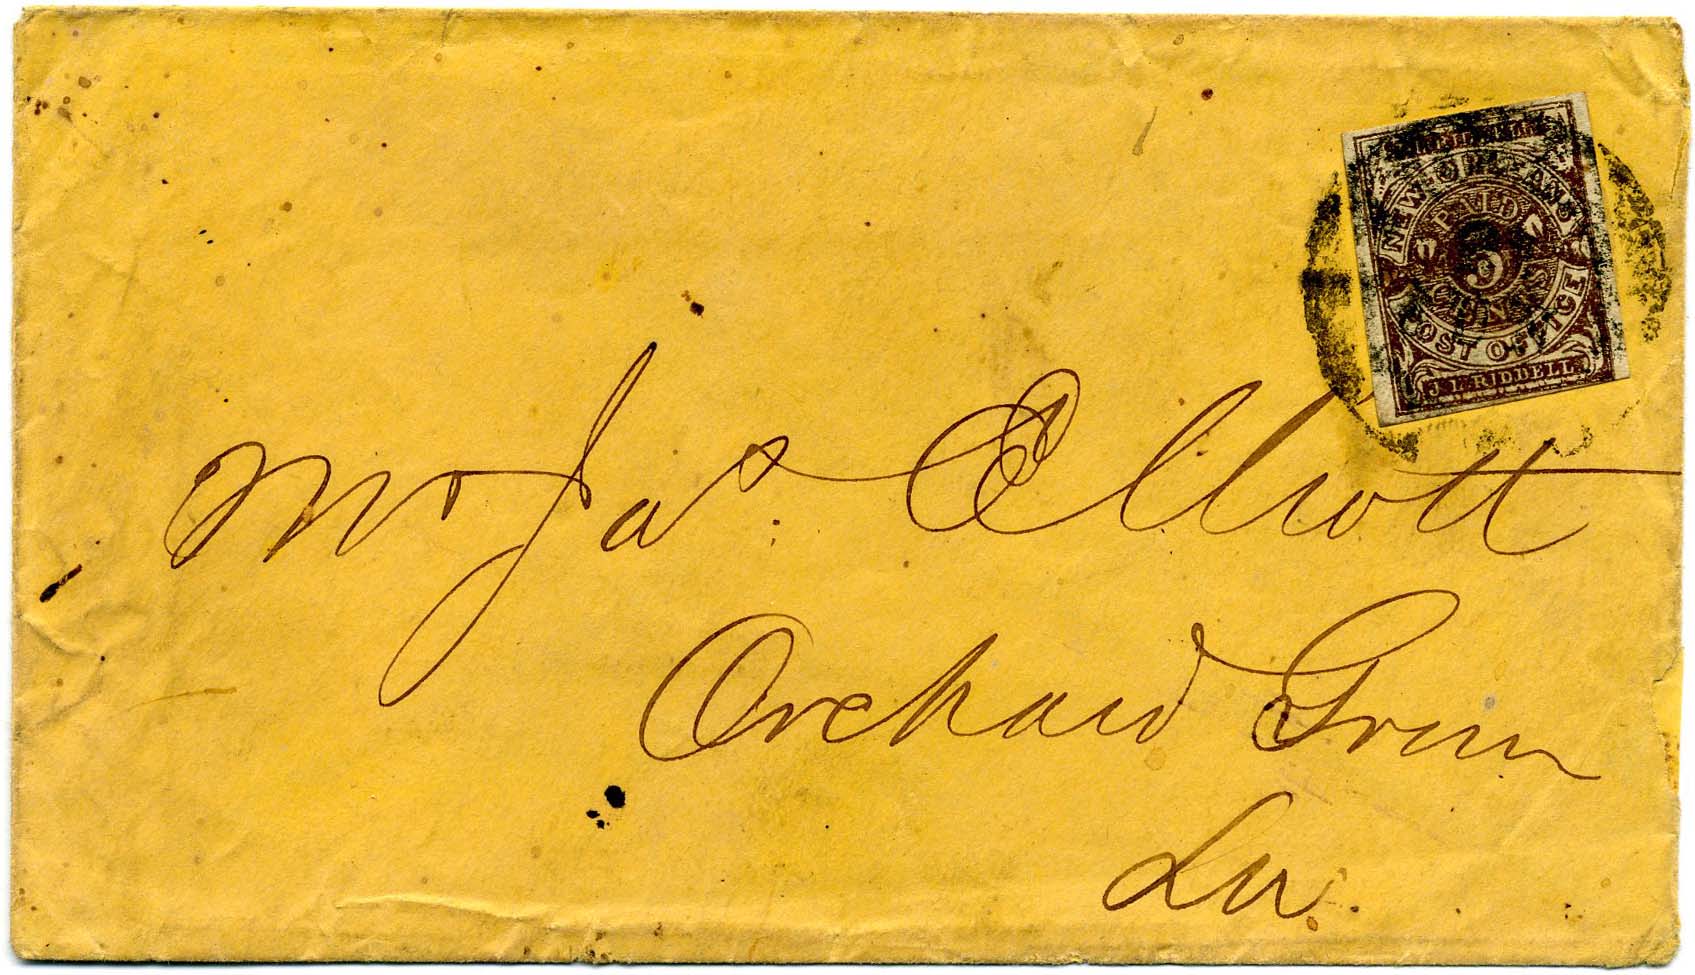 NEW ORLEANS
PAID
5
CENTS
POST OFFICE
J.L. RIDDELL
Mr Jas. Elliott
Orchard Grun
La.